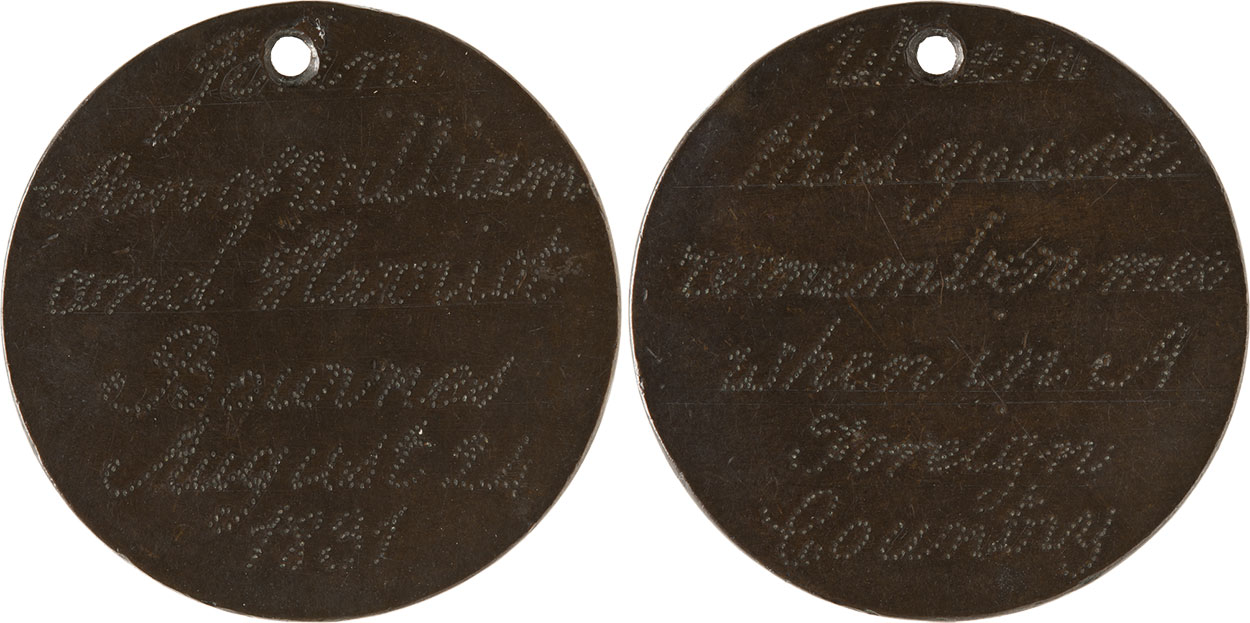 John
Son of William
and Harriot
Bourne
August 24
1831
When
this you see
remember me
when in A
Foreign
Country